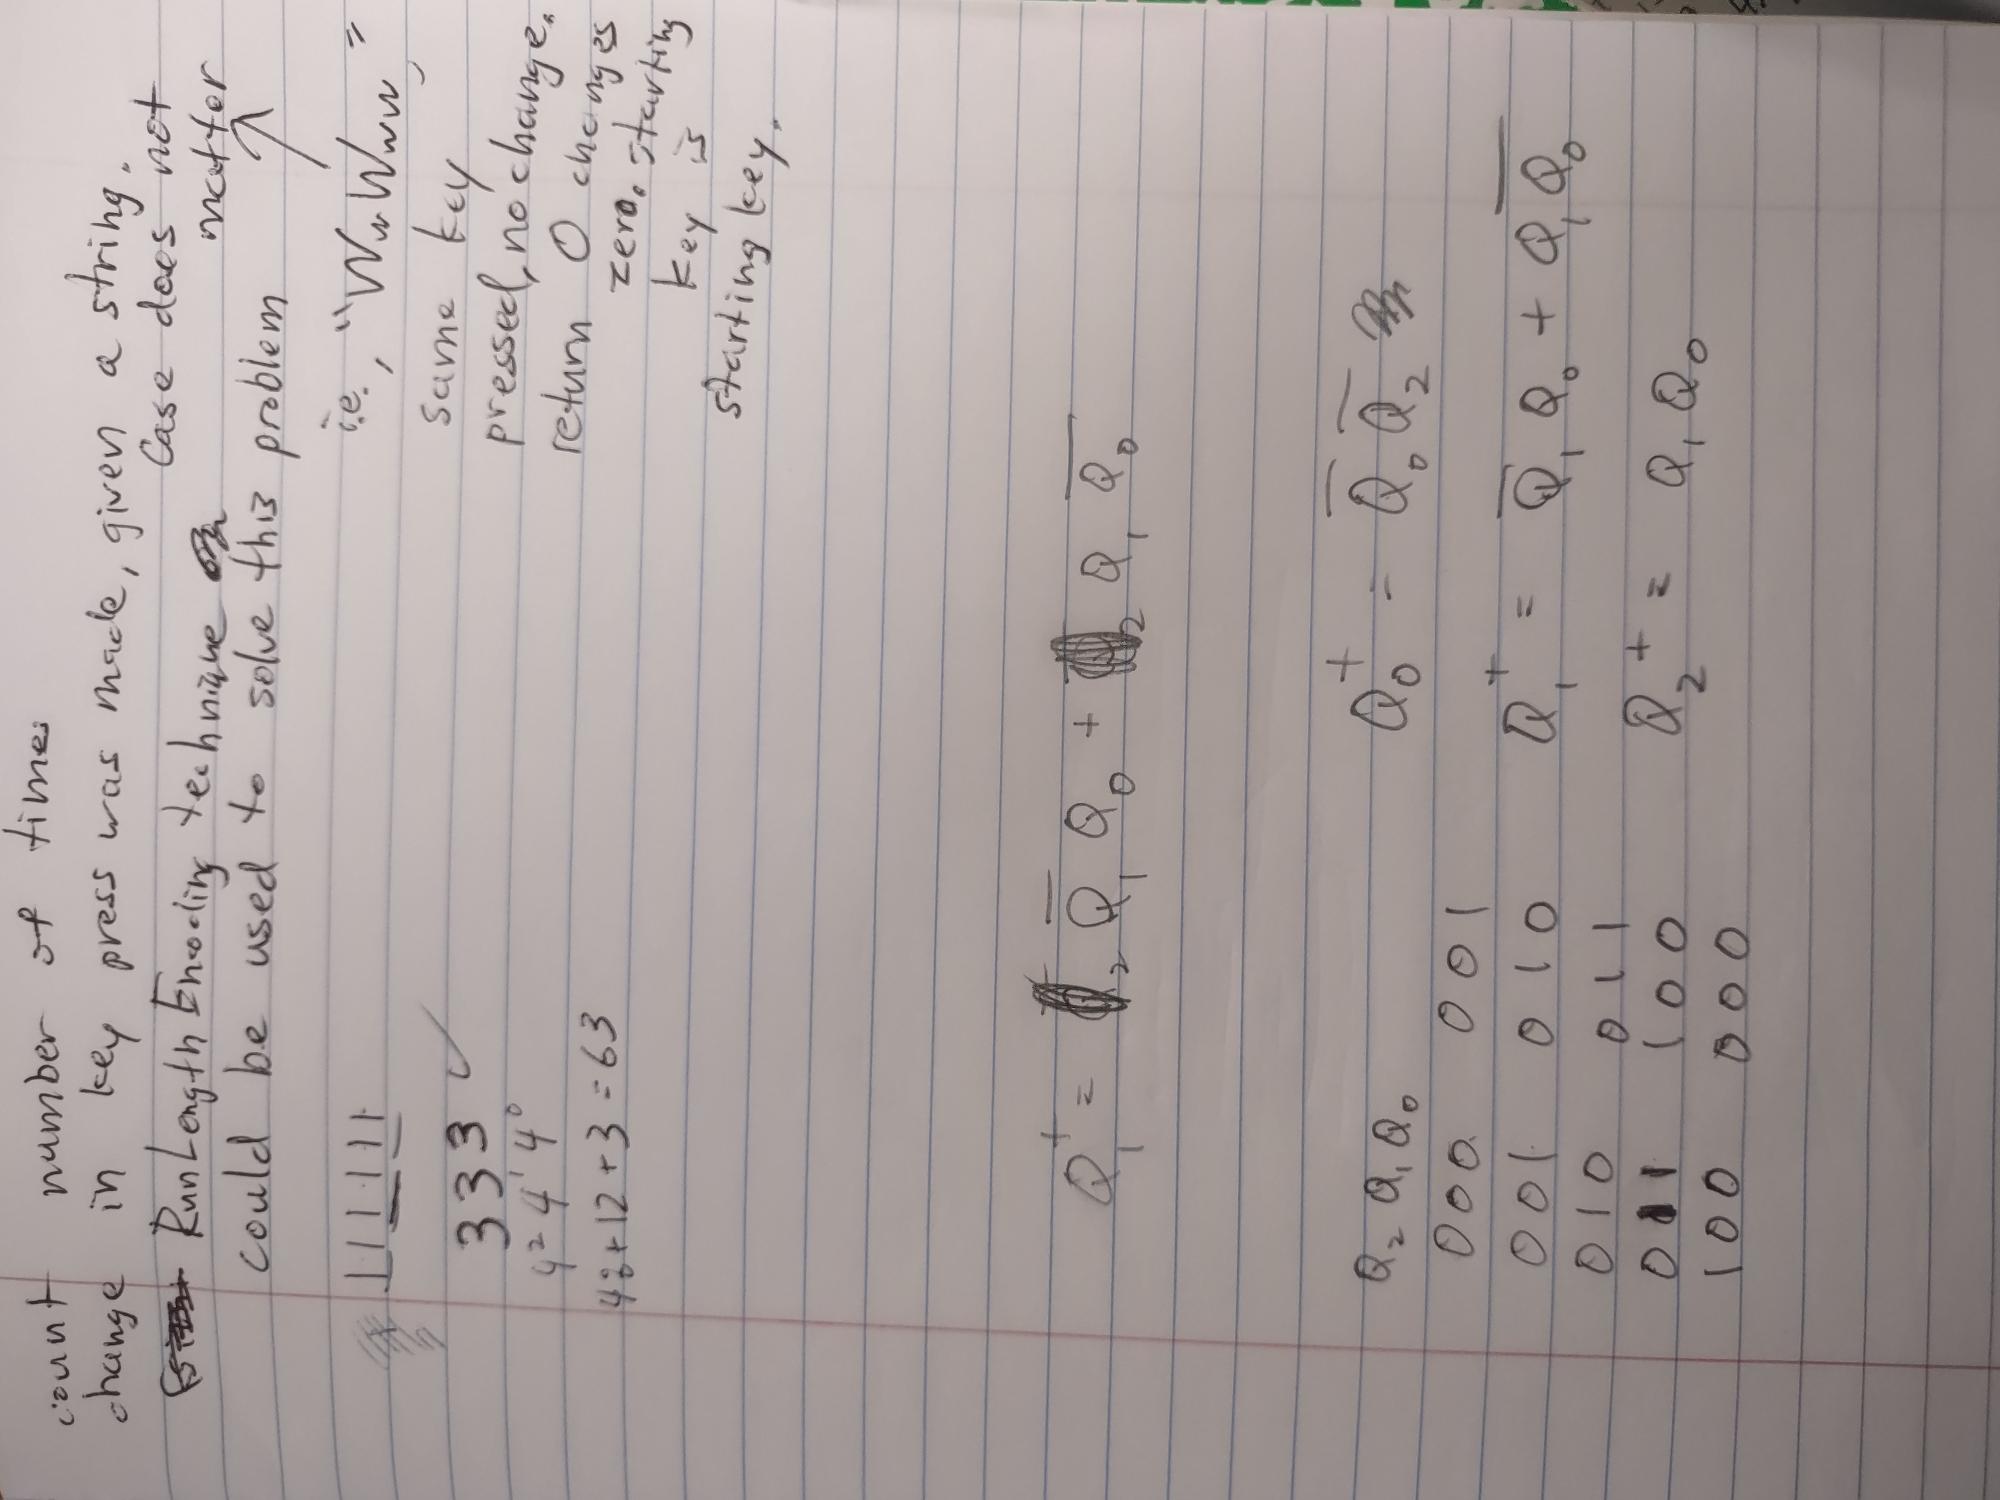 count number of times
change in key press was made, given a string.
Case does not
matter
RunLength Encoding technique
could be used to solve this problem
i.e., "WwWww,"
same key
pressed, no change.
return 0 changes
zero. starting
key is
starting key.
111111
333 ✓
4² 4¹ 4⁰
48 + 12 + 3 = 63
Q₁⁺ = Q̅₁ Q₀ + Q₁ Q̅₀
Q₂ Q₁ Q₀
000 001
001 010
010 011
011 100
100 000
Q₀⁺ = Q̅₀ Q̅₂
Q₁⁺ = Q̅₁ Q₀ + Q₁ Q̅₀
Q₂⁺ = Q₁ Q₀